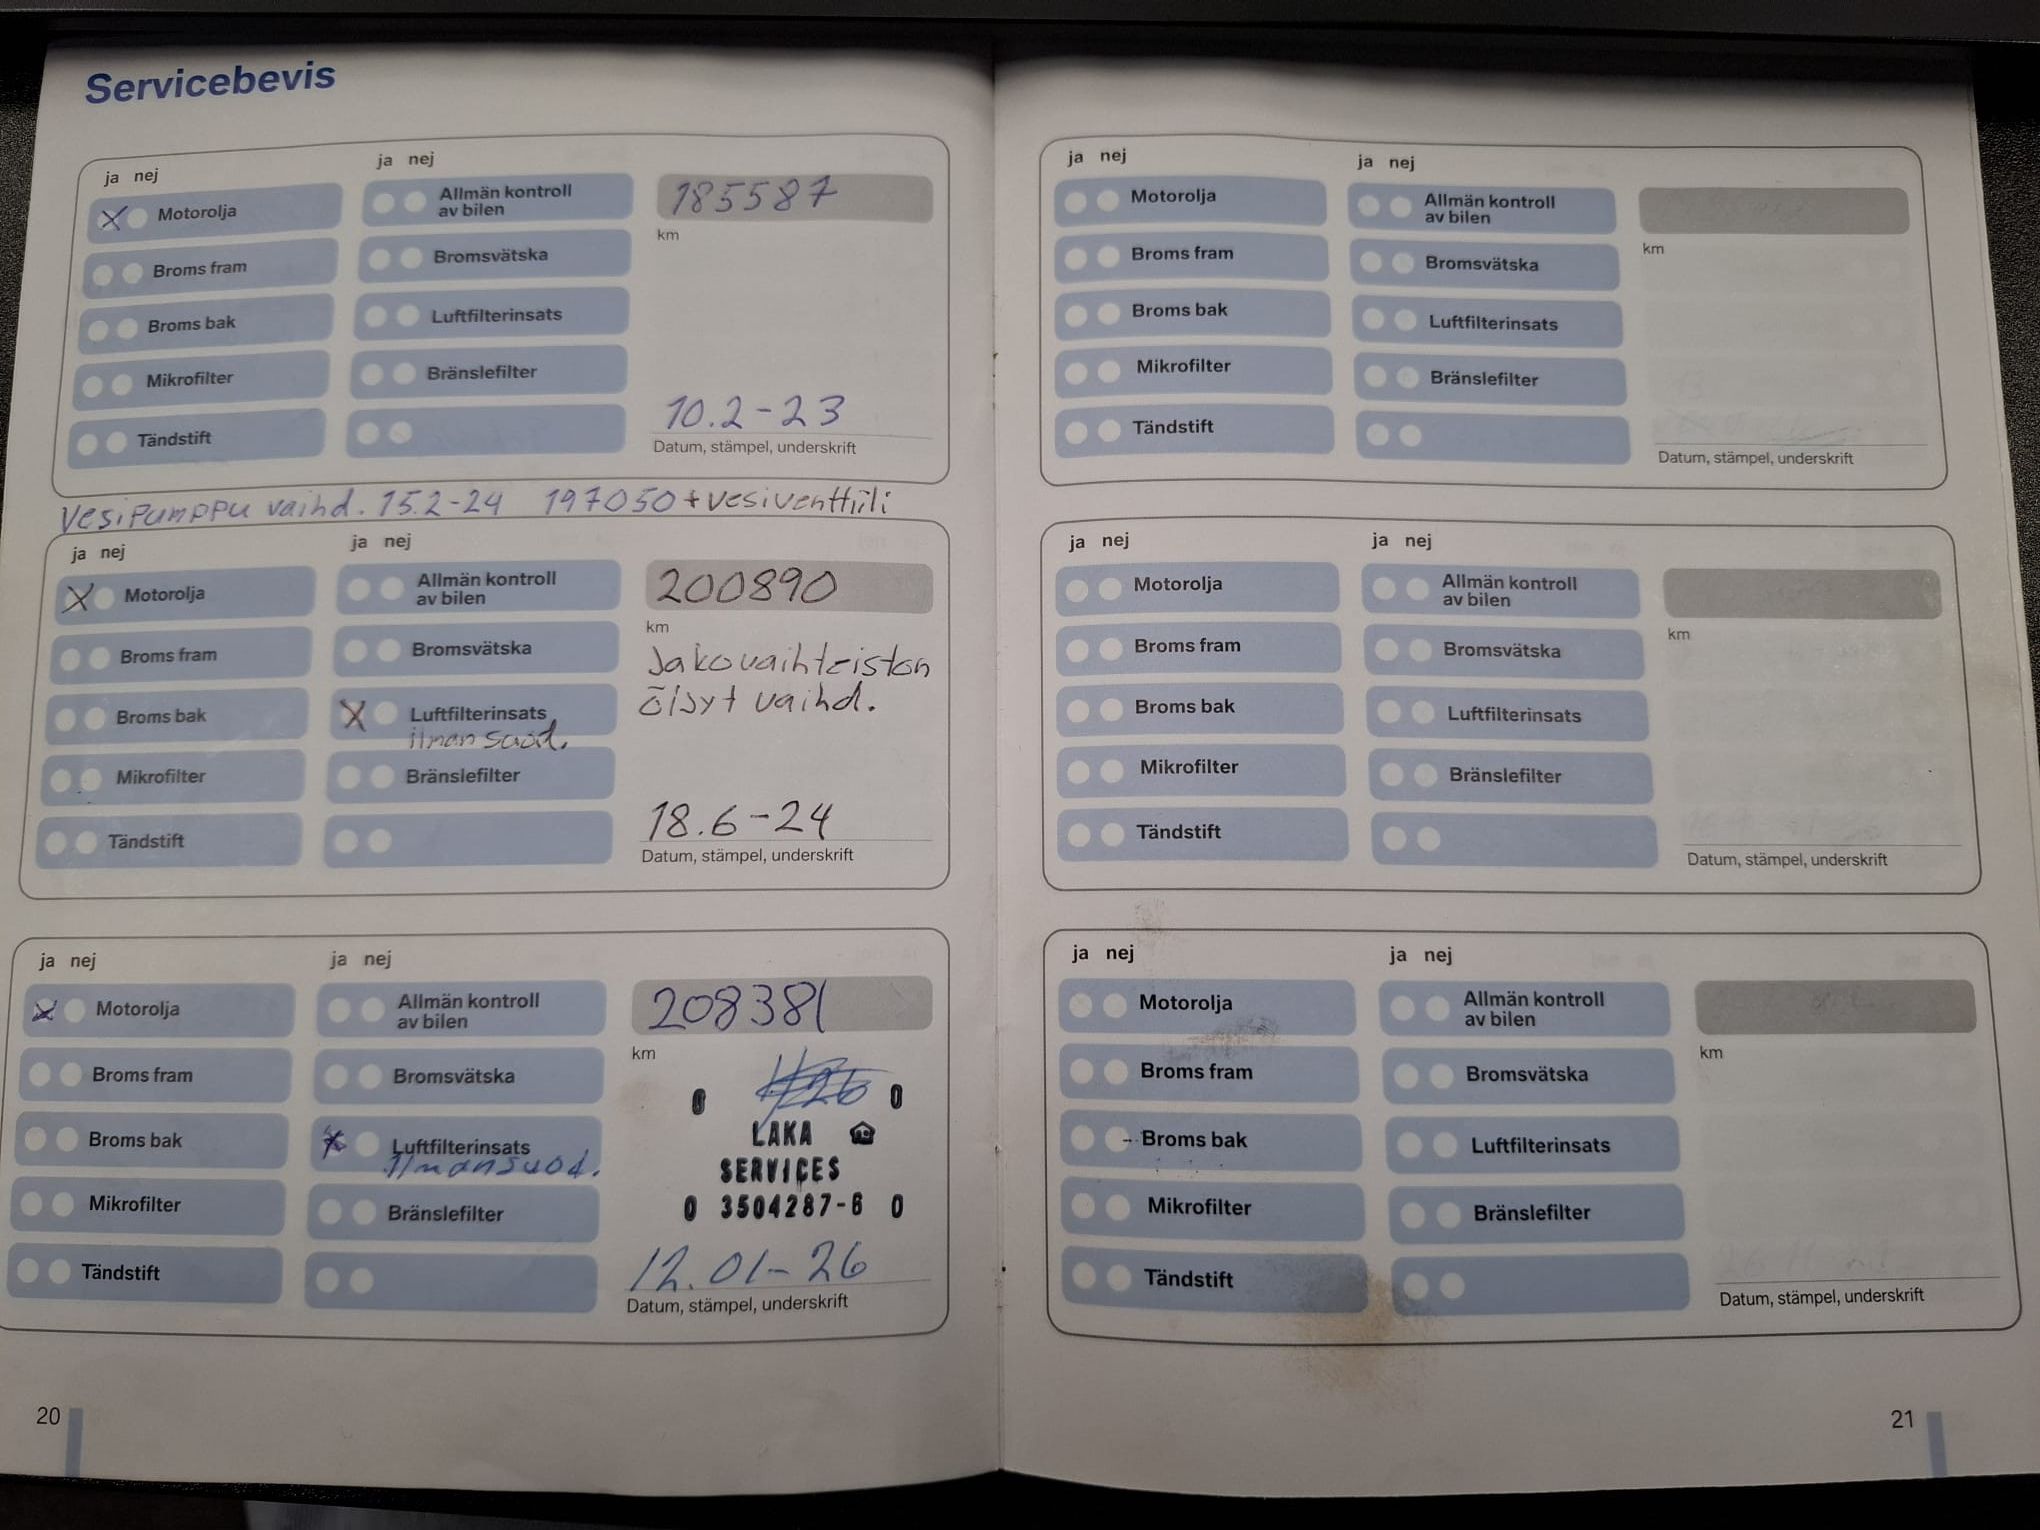 Servicebevis
ja nej
ja nej
185587
Motorolja
Allmän kontroll
av bilen
km
Broms fram
Bromsvätska
Broms bak
Luftfilterinsats
Mikrofilter
Bränslefilter
Tändstift
10.2-23
Datum, stämpel, underskrift
Vesipumppu vaihd. 15.2-24 197050 + vesiventtiili
ja nej
ja nej
200890
Motorolja
Allmän kontroll
av bilen
km
Broms fram
Bromsvätska
Jakovaihteiston
öljyt vaihd.
Broms bak
Luftfilterinsats
ilmansuod.
Mikrofilter
Bränslefilter
Tändstift
18.6-24
Datum, stämpel, underskrift
ja nej
ja nej
208381
Motorolja
Allmän kontroll
av bilen
km
Broms fram
Bromsvätska
LAKA
SERVICES
0 3504287-6 0
Broms bak
Luftfilterinsats
Ilmansuod.
Mikrofilter
Bränslefilter
Tändstift
12.01-26
Datum, stämpel, underskrift
20
ja nej
ja nej
Motorolja
Allmän kontroll
av bilen
km
Broms fram
Bromsvätska
Broms bak
Luftfilterinsats
Mikrofilter
Bränslefilter
Tändstift
Datum, stämpel, underskrift
ja nej
ja nej
Motorolja
Allmän kontroll
av bilen
km
Broms fram
Bromsvätska
Broms bak
Luftfilterinsats
Mikrofilter
Bränslefilter
Tändstift
Datum, stämpel, underskrift
ja nej
ja nej
Motorolja
Allmän kontroll
av bilen
km
Broms fram
Bromsvätska
Broms bak
Luftfilterinsats
Mikrofilter
Bränslefilter
Tändstift
Datum, stämpel, underskrift
21